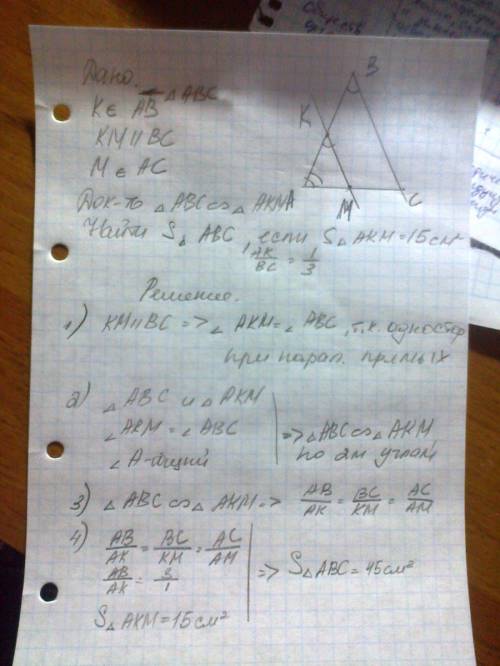 Дано. △ABC
K ∈ AB
KM || BC
M ∈ AC
B
K
A
M
C
Док-ть △ABC ∾ △AKM
Найти S△ABC, если S△AKM = 15 см²
AK/BC = 1/3
Решение.
1) KM || BC => ∠AKM = ∠ABC, т.к. одностор
при парал. прямых
2) △ABC и △AKM
∠AKM = ∠ABC
∠A - общий
=> △ABC ∾ △AKM
по 2м углам
3) △ABC ∾ △AKM => AB/AK = BC/KM = AC/AM
4) AB/AK = BC/KM = AC/AM
AB/AK = 3/1
S△AKM = 15 см²
=> S△ABC = 45 см²